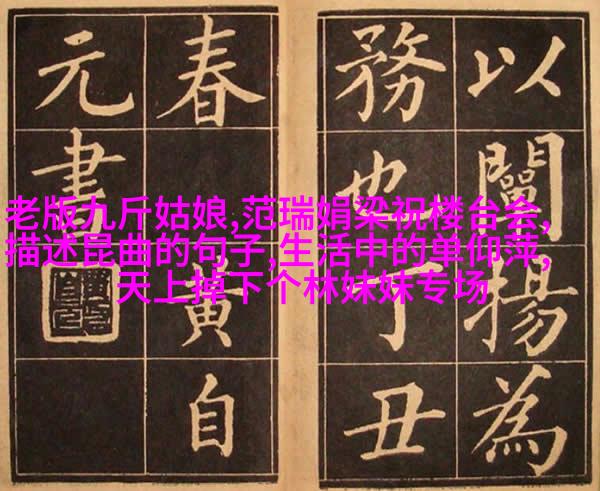 以闡揚為
務也丁丑
春黃自
元書
老版九斤姑娘,范瑞娟梁祝楼台会,
描述昆曲的句子,生活中的单仰萍,
天上掉下个林妹妹专场